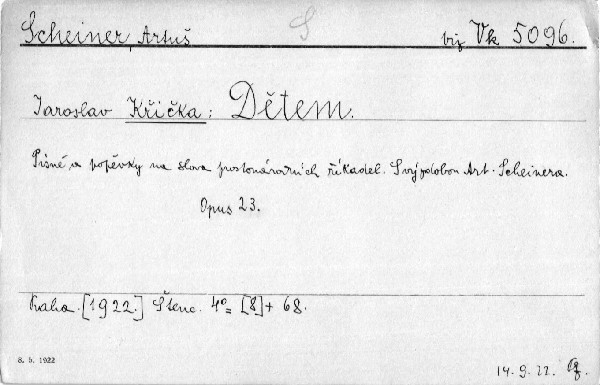 Scheiner, Artuš S viz Vk 5096.
Jaroslav Křička: Dětem.
Písně a popěvky na slova prostonárodních říkadel. S výzdobou Art. Scheinera.
Opus 23.
Praha. [1922.] Štenc. 4° = [8] + 68.
8. b. 1922
14. 9. 22.